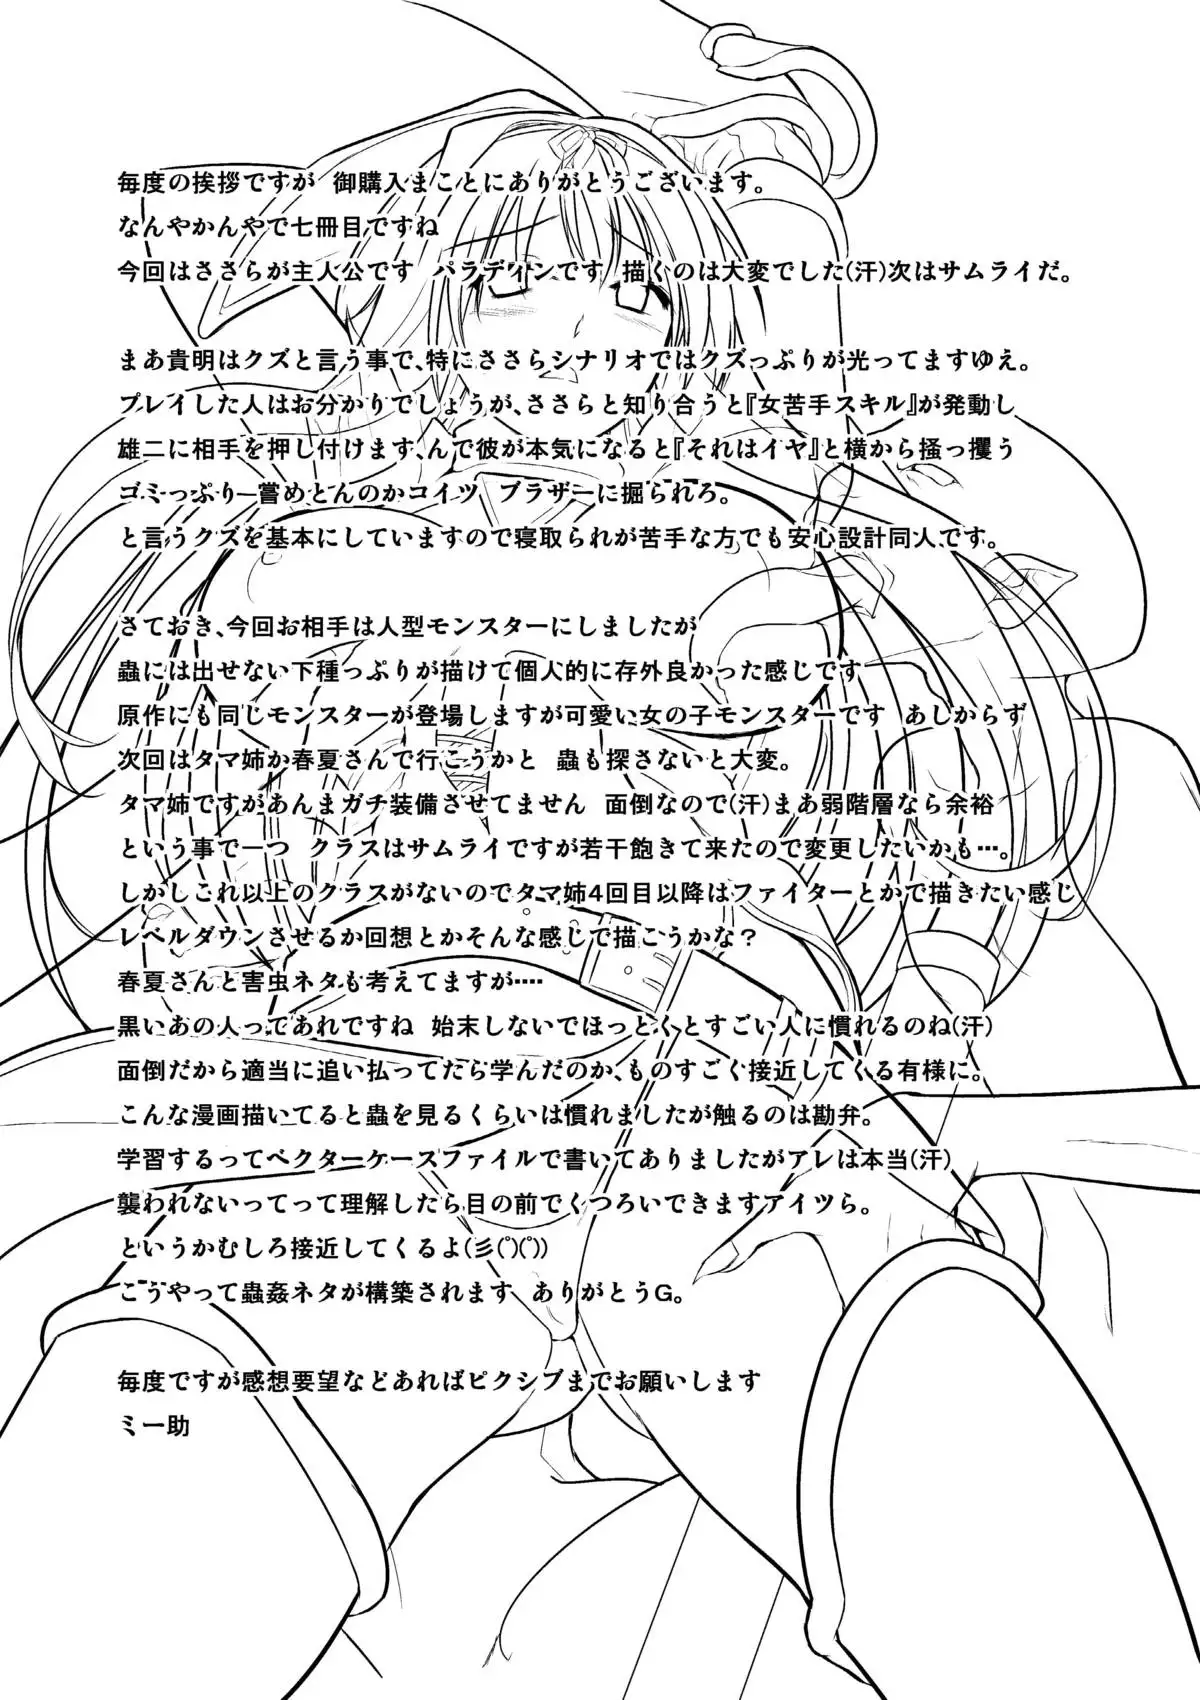 毎度の挨拶ですが　御購入まことにありがとうございます。
なんやかんやで七冊目ですね
今回はささらが主人公です　パラディンです　描くのは大変でした(汗)次はサムライだ。
まあ貴明はクズと言う事で、特にささらシナリオではクズっぷりが光ってますゆえ。
プレイした人はお分かりでしょうが、ささらと知り合うと『女苦手スキル』が発動し
雄二に相手を押し付けます、んで彼が本気になると『それはイヤ』と横から掻っ攫う
ゴミっぷり─嘗めとんのかコイツ　ブラザーに掘られろ。
と言うクズを基本にしていますので寝取られが苦手な方でも安心設計同人です。
さておき、今回お相手は人型モンスターにしましたが
蟲には出せない下種っぷりが描けて個人的に存外良かった感じです
原作にも同じモンスターが登場しますが可愛い女の子モンスターです　あしからず
次回はタマ姉か春夏さんで行こうかと　蟲も探さないと大変。
タマ姉ですがあんまガチ装備させてません　面倒なので(汗)まあ弱階層なら余裕
という事で一つ　クラスはサムライですが若干飽きて来たので変更したいかも…。
しかしこれ以上のクラスがないのでタマ姉4回目以降はファイターとかで描きたい感じ
レベルダウンさせるか回想とかそんな感じで描こうかな？
春夏さんと害虫ネタも考えてますが‥‥
黒いあの人ってあれですね　始末しないでほっとくとすごい人に慣れるのね(汗)
面倒だから適当に追い払ってたら学んだのか、ものすごく接近してくる有様に。
こんな漫画描いてると蟲を見るくらいは慣れましたが触るのは勘弁。
学習するってベクターケースファイルで書いてありましたがアレは本当(汗)
襲われないってって理解したら目の前でくつろいできますアイツら。
というかむしろ接近してくるよ(彡(ﾟ)(ﾟ))
こうやって蟲姦ネタが構築されます　ありがとうG。
毎度ですが感想要望などあればピクシブまでお願いします
ミー助